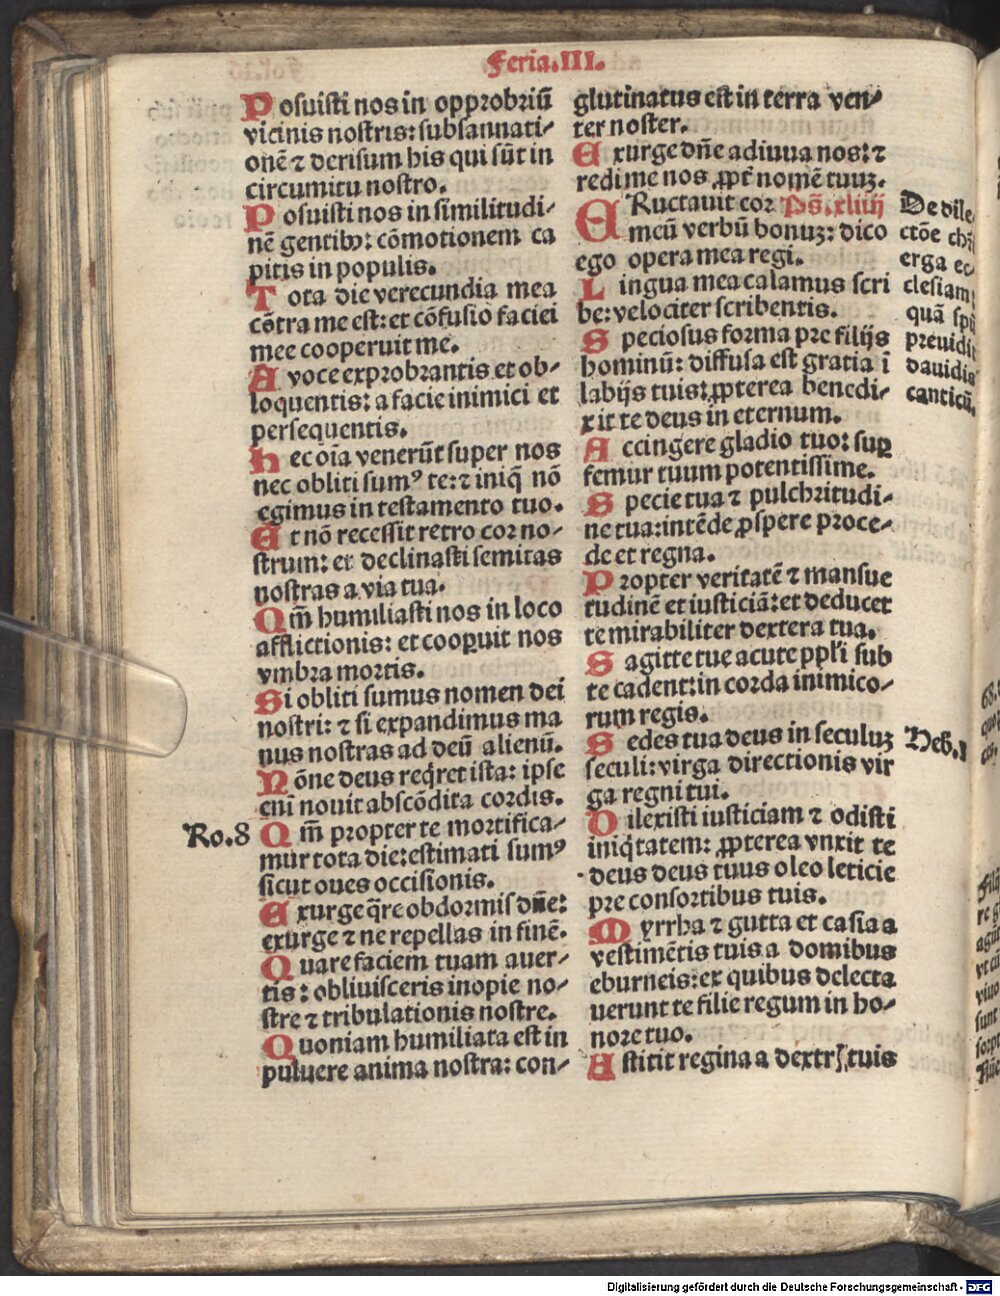 Feria.III.
Posuisti nos in opprobriū
vicinis nostris: subsannati-
onē ⁊ derisum his qui sūt in
circumitu nostro.
Posuisti nos in similitudi-
nē gentibꝫ: cōmotionem ca
pitis in populis.
Tota die verecundia mea
cōtra me est: et cōfusio faciei
mee cooperuit me.
A voce exprobrantis et ob-
loquentis: a facie inimici et
persequentis.
Hec oīa venerūt super nos
nec obliti sumꝰ te: ⁊ iniq̄ nō
egimus in testamento tuo.
Et nō recessit retro cor no-
strum: et declinasti semitas
nostras a via tua.
Qm̄ humiliasti nos in loco
afflictionis: et cooꝑuit nos
vmbra mortis.
Si obliti sumus nomen dei
nostri: ⁊ si expandimus ma
nus nostras ad deū alienū.
Nōne deus reqͥret ista: ipse
eni nouit abscōdita cordis.
Ro.8
Qm̄ propter te mortifica-
mur tota die: estimati sumꝰ
sicut oues occisionis.
Exurge q̄re obdormis dn̄e:
exurge ⁊ ne repellas in finē.
Quare faciem tuam auer-
tis: obliuisceris inopie no-
stre ⁊ tribulationis nostre.
Quoniam humiliata est in
puluere anima nostra: con-
glutinatus est in terra ven-
ter noster.
Exurge dn̄e adiuua nos: ⁊
redime nos ꝓpt̄ nomē tuuꝫ.
ERuctauit cor Ps̄.xliiij
meū verbū bonuꝫ: dico
ego opera mea regi.
Lingua mea calamus scri
be: velociter scribentis.
Speciosus forma pre filijs
hominū: diffusa est gratia ī
labijs tuis: ꝓpterea benedi-
xit te deus in eternum.
Accingere gladio tuo: suꝑ
femur tuum potentissime.
Specie tua ⁊ pulchritudi-
ne tua: intēde ꝓspere proce-
de et regna.
Propter veritatē ⁊ mansue
tudinē et iusticiā: et deducet
te mirabiliter dextera tua.
Sagitte tue acute ppl̄i sub
te cadent: in corda inimico-
rum regis.
Sedes tua deus in seculuꝫ
seculi: virga directionis vir
ga regni tui.
Dilexisti iusticiam ⁊ odisti
iniqͥtatem: ꝓpterea vnxit te
deus deus tuus oleo leticie
pre consortibus tuis.
Myrrha ⁊ gutta et casia a
vestimētis tuis a domibus
eburneis: ex quibus delecta
uerunt te filie regum in ho-
nore tuo.
Astitit regina a dextrꝭ tuis
De dile
ctōe chr̄i
erga ec-
clesiam:
quā spū
preuidit
dauidis
canticū.
Heb.1
Digitalisierung gefördert durch die Deutsche Forschungsgemeinschaft - DFG